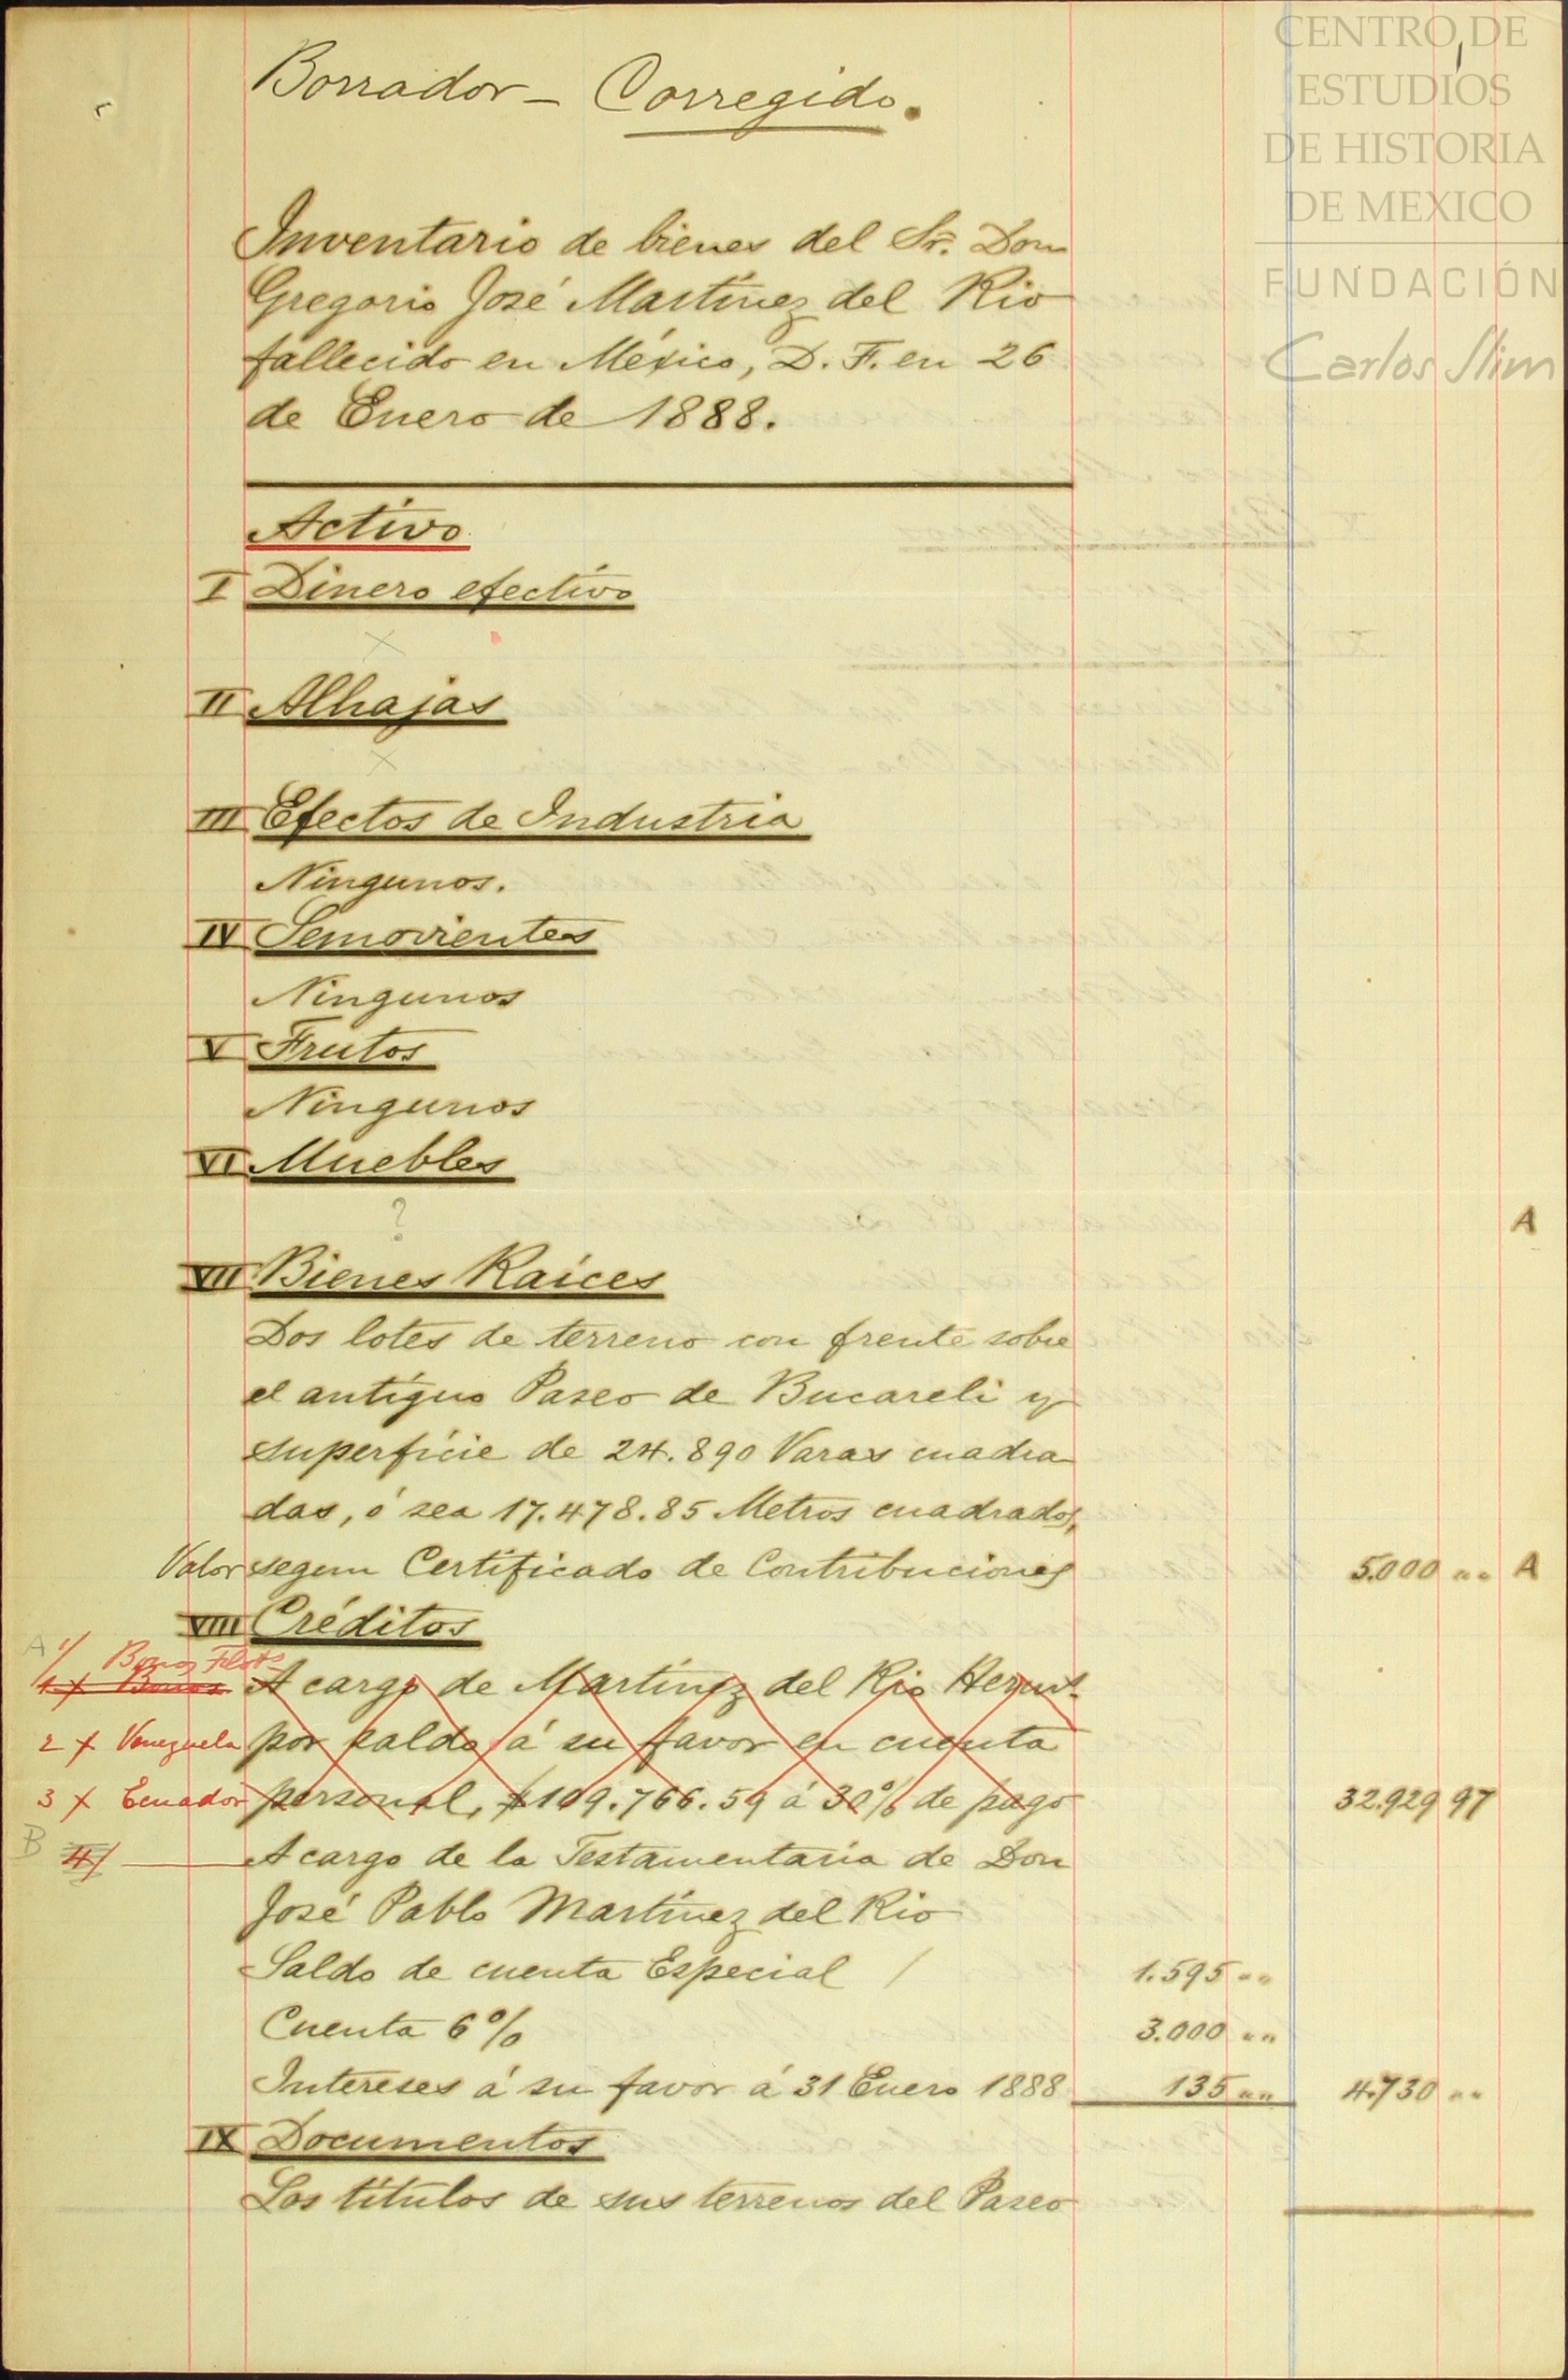 CENTRO DE
ESTUDIOS
DE HISTORIA
DE MEXICO
FUNDACIÓN
Carlos Slim
Borrador - Corregido.
Inventario de bienes del Sr. Don
Gregorio José Martínez del Rio
fallecido en México, D. F. en 26
de Enero de 1888.
Activo
I Dinero efectivo
x
II Alhajas
x
III Efectos de Industria
Ningunos.
IV Semovientes
Ningunos
V Frutos
Ningunos
VI Muebles
?
A
VII Bienes Raices
Dos lotes de terreno con frente sobre
el antiguo Paseo de Bucareli y
superficie de 24.890 Varas cuadra
das, ó sea 17.478.85 Metros cuadrados,
Valor segun Certificado de Contribuciones 5.000 " " A
VIII Créditos
A 1/ Bonos
1 x Bonos A cargo de Martínez del Rio Hermos
2 x Venezuela por saldo á su favor en cuenta
3 x Ecuador personal, $109.766.59 á 30% de pago 32.929 97
B 4/ A cargo de la Testamentaria de Don
José Pablo Martínez del Rio
Saldo de cuenta Especial / 1.595 " "
Cuenta 6% 3.000 " "
Intereses á su favor á 31 Enero 1888 135 " " 4.730 " "
IX Documentos
Los títulos de sus terrenos del Paseo